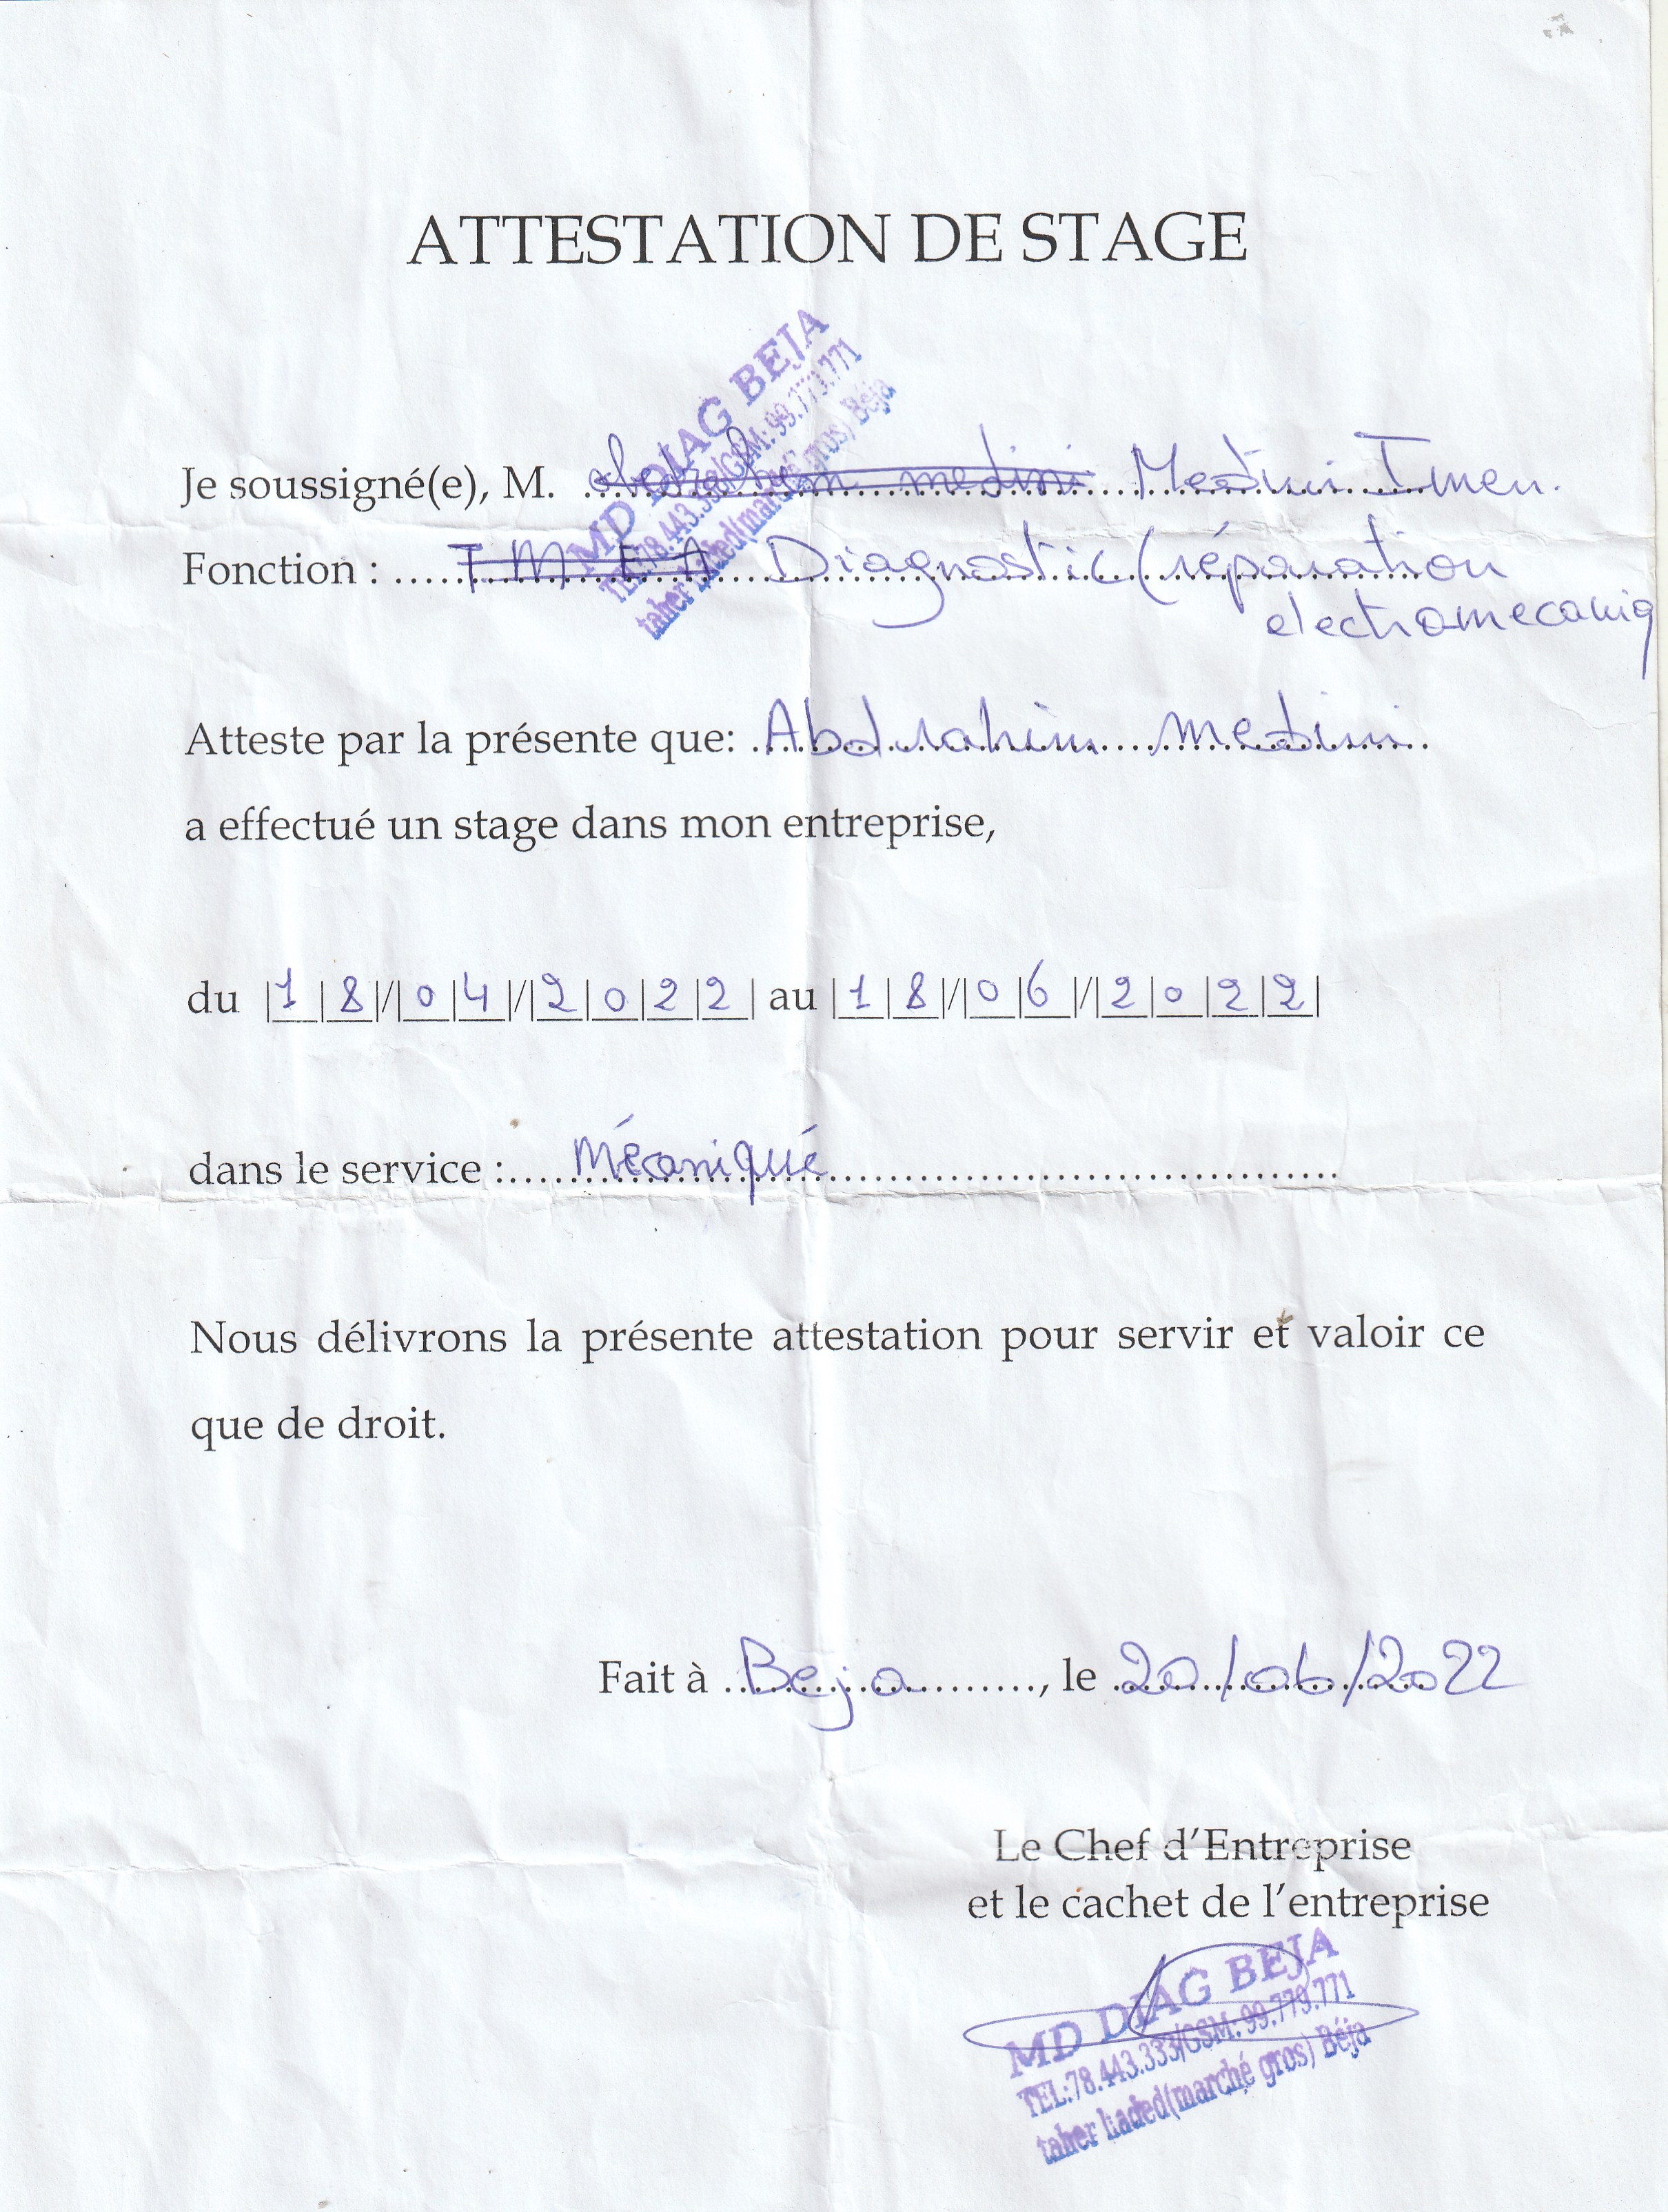 ATTESTATION DE STAGE
MD DIAG BEJA
TEL:78.443.333/GSM: 99.773.771
taher haded(marché gros) Béja
Je soussigné(e), M. abdrahim medini Medini Imen.
Fonction : T M E A Diagnostic (réparation
electromecaniq
Atteste par la présente que: Abdrahim medini
a effectué un stage dans mon entreprise,
du |1|8|/|0|4|/|2|0|2|2| au |1|8|/|0|6|/|2|0|2|2|
dans le service : Mécaniqué
Nous délivrons la présente attestation pour servir et valoir ce
que de droit.
Fait à Beja, le 20/06/2022
Le Chef d'Entreprise
et le cachet de l'entreprise
MD DIAG BEJA
TEL:78.443.333/GSM: 99.773.771
taher haded(marché gros) Béja